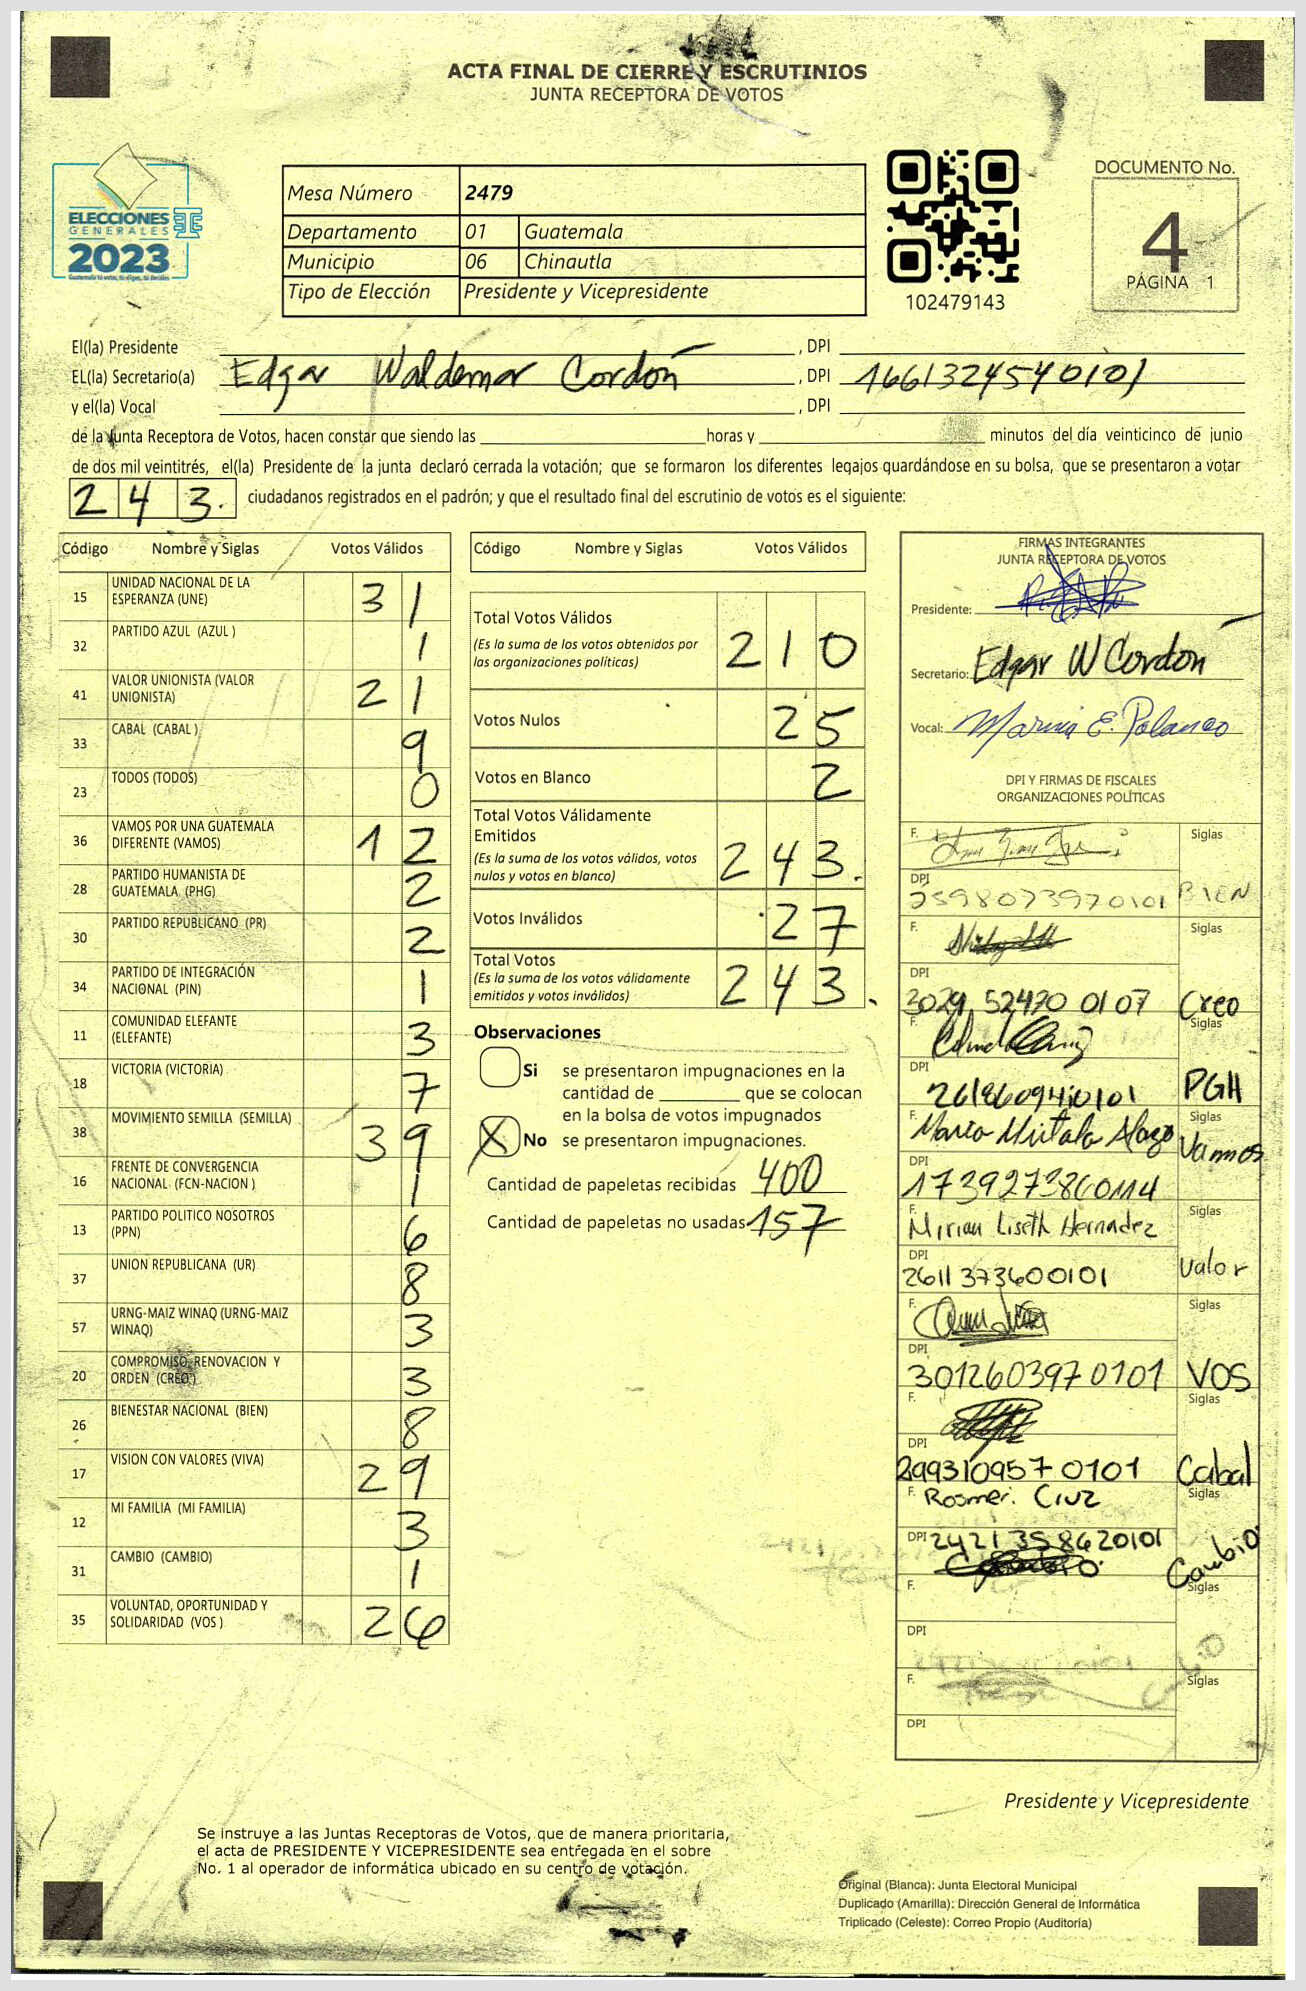 ACTA FINAL DE CIERRE Y ESCRUTINIOS
JUNTA RECEPTORA DE VOTOS
ELECCIONES
GENERALES
2023
Mesa Número 2479
Departamento 01 Guatemala
Municipio 06 Chinautla
Tipo de Elección Presidente y Vicepresidente
102479143
DOCUMENTO No.
4
PÁGINA 1
El(la) Presidente , DPI
EL(la) Secretario(a) Edgar Waldemar Cordón , DPI 1661324540101
y el(la) Vocal , DPI
de la Junta Receptora de Votos, hacen constar que siendo las horas y minutos del día veinticinco de junio
de dos mil veintitrés, el(la) Presidente de la junta declaró cerrada la votación; que se formaron los diferentes legajos guardándose en su bolsa, que se presentaron a votar
243. ciudadanos registrados en el padrón; y que el resultado final del escrutinio de votos es el siguiente:
Código Nombre y Siglas Votos Válidos
15 UNIDAD NACIONAL DE LA ESPERANZA (UNE) 31
32 PARTIDO AZUL (AZUL ) 1
41 VALOR UNIONISTA (VALOR UNIONISTA) 21
33 CABAL (CABAL ) 9
23 TODOS (TODOS) 0
36 VAMOS POR UNA GUATEMALA DIFERENTE (VAMOS) 12
28 PARTIDO HUMANISTA DE GUATEMALA (PHG) 2
30 PARTIDO REPUBLICANO (PR) 2
34 PARTIDO DE INTEGRACIÓN NACIONAL (PIN) 1
11 COMUNIDAD ELEFANTE (ELEFANTE) 3
18 VICTORIA (VICTORIA) 7
38 MOVIMIENTO SEMILLA (SEMILLA) 39
16 FRENTE DE CONVERGENCIA NACIONAL (FCN-NACION ) 1
13 PARTIDO POLITICO NOSOTROS (PPN) 6
37 UNION REPUBLICANA (UR) 8
57 URNG-MAIZ WINAQ (URNG-MAIZ WINAQ) 3
20 COMPROMISO, RENOVACION Y ORDEN (CREO ) 3
26 BIENESTAR NACIONAL (BIEN) 8
17 VISION CON VALORES (VIVA) 29
12 MI FAMILIA (MI FAMILIA) 3
31 CAMBIO (CAMBIO) 1
35 VOLUNTAD, OPORTUNIDAD Y SOLIDARIDAD (VOS ) 26
Código Nombre y Siglas Votos Válidos
Total Votos Válidos
(Es la suma de los votos obtenidos por
las organizaciones políticas) 210
Votos Nulos 25
Votos en Blanco 2
Total Votos Válidamente
Emitidos
(Es la suma de los votos válidos, votos
nulos y votos en blanco) 243.
Votos Inválidos 27
Total Votos
(Es la suma de los votos válidamente
emitidos y votos inválidos) 243.
Observaciones
Si se presentaron impugnaciones en la
cantidad de que se colocan
en la bolsa de votos impugnados
X No se presentaron impugnaciones.
Cantidad de papeletas recibidas 400
Cantidad de papeletas no usadas 157
FIRMAS INTEGRANTES
JUNTA RECEPTORA DE VOTOS
Presidente:
Secretario: Edgar W Cordón
Vocal: Marina E. Polanco
DPI Y FIRMAS DE FISCALES
ORGANIZACIONES POLÍTICAS
F. Siglas
DPI
2598073970101 BIEN
F. Siglas
DPI
3029 52470 0107 Creo
F. Siglas
DPI
2618609410101 PGH
F. Maria Mirtala Siglas
Vamos
DPI
F. Siglas
Mirian Liseth Hernadez
DPI
2611373600101 Valor
F. Siglas
DPI
3012603970101 VOS
F. Siglas
DPI
299310957 0101 Cabal
F. Rosmeri. Cruz Siglas
DPI 2421358620101
Cambio
F. Siglas
DPI
F. Siglas
DPI
Presidente y Vicepresidente
Se instruye a las Juntas Receptoras de Votos, que de manera prioritaria,
el acta de PRESIDENTE Y VICEPRESIDENTE sea entregada en el sobre
No. 1 al operador de informática ubicado en su centro de votación.
Original (Blanca): Junta Electoral Municipal
Duplicado (Amarilla): Dirección General de Informática
Triplicado (Celeste): Correo Propio (Auditoría)